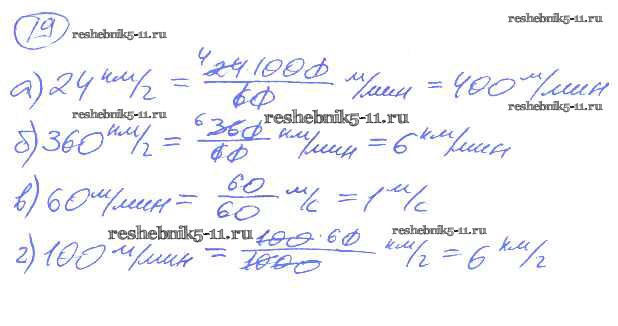 19
reshebnik5-11.ru
reshebnik5-11.ru
а) 24 км/г = 24·1000/60 м/мин = 400 м/мин
4
reshebnik5-11.ru
reshebnik5-11.ru
reshebnik5-11.ru
б) 360 км/г = 360/60 км/мин = 6 км/мин
6
в) 60 м/мин = 60/60 м/с = 1 м/с
reshebnik5-11.ru
reshebnik5-11.ru
г) 100 м/мин = 100·60/1000 км/г = 6 км/г